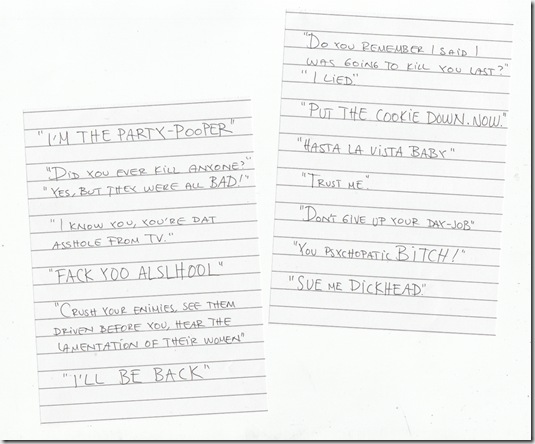 "I'M THE PARTY-POOPER"
"DID YOU EVER KILL ANYONE?"
"YES, BUT THEY WERE ALL BAD!"
"I KNOW YOU, YOU'RE DAT
ASSHOLE FROM TV."
"FACK YOO ALSLHOOL"
"CRUSH YOUR ENIMIES, SEE THEM
DRIVEN BEFORE YOU, HEAR THE
LAMENTATION OF THEIR WOMEN"
"I'LL BE BACK"
"DO YOU REMEMBER I SAID I
WAS GOING TO KILL YOU LAST?"
"I LIED."
"PUT THE COOKIE DOWN. NOW."
"HASTA LA VISTA BABY"
"TRUST ME."
"DON'T GIVE UP YOUR DAY-JOB"
"YOU PSYCHOPATIC BITCH!"
"SUE ME DICKHEAD."